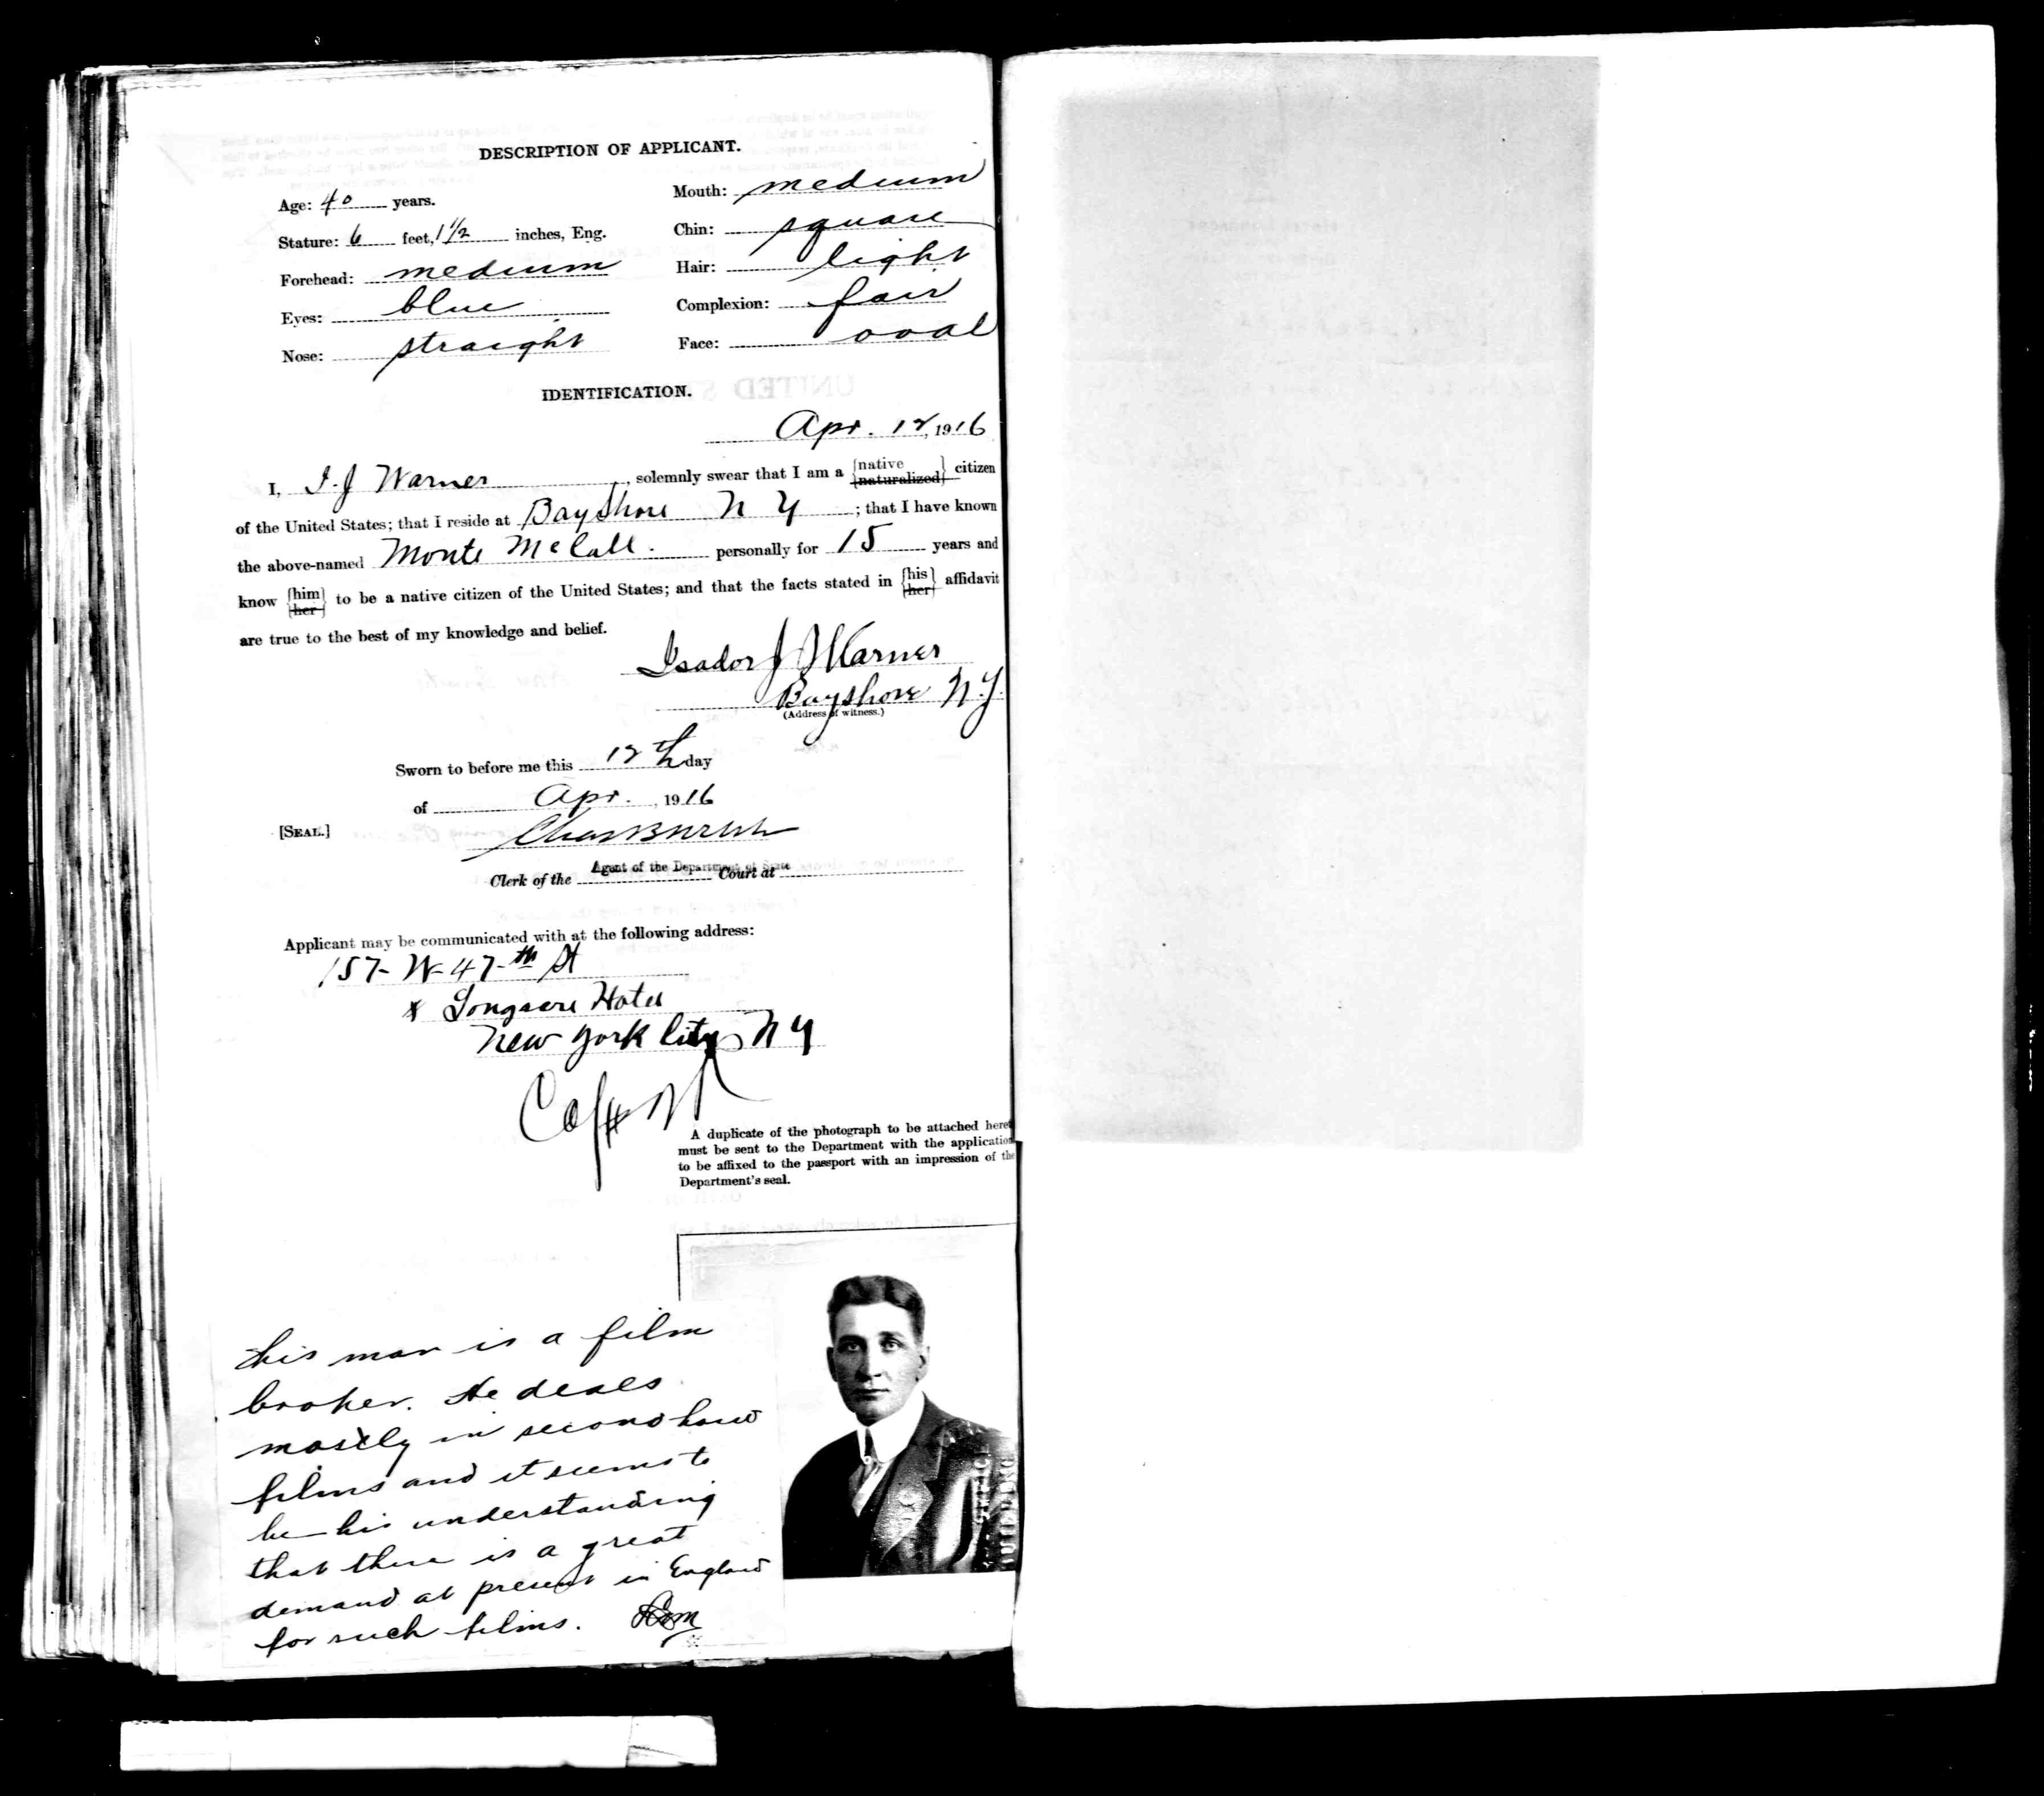 DESCRIPTION OF APPLICANT.
Age: 40 years.
Mouth: medium
Stature: 6 feet, 1 1/2 inches, Eng.
Chin: square
Forehead: medium
Hair: light
Eyes: blue
Complexion: fair
Nose: straight
Face: oval
IDENTIFICATION.
Apr. 12, 1916
I, I. J Warner, solemnly swear that I am a {native naturalized} citizen
of the United States; that I reside at Bayshore N Y; that I have known
the above-named Monte McCall. personally for 15 years and
know {him her} to be a native citizen of the United States; and that the facts stated in {his her} affidavit
are true to the best of my knowledge and belief.
Isador J Warner
Bayshore N.Y.
(Address of witness.)
Sworn to before me this 12th day
of Apr., 1916
[SEAL.]
Agent of the Department of State
Clerk of the Court at
Applicant may be communicated with at the following address:
157- W- 47-th St
Longacre Hotel
New York City N Y
A duplicate of the photograph to be attached hereto
must be sent to the Department with the application
to be affixed to the passport with an impression of the
Department's seal.
this man is a film
broker. He deals
mostly in second hand
films and it seems to
be his understanding
that there is a great
demand at present in England
for such films.